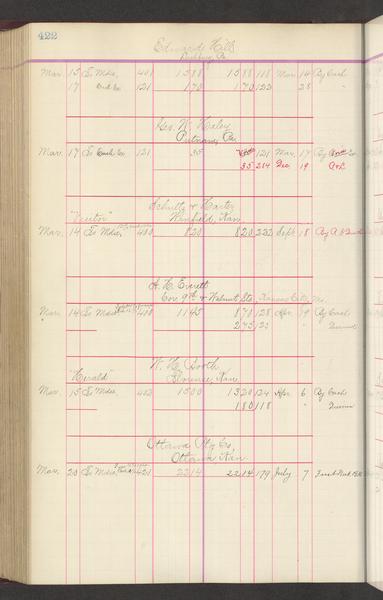 422
Edwards Hill
Mar. 15 To Mdse, 401 1588 1588 118 Mar. 14 By Cash
17 121 170 170 122 28 "
Geo. W. Haley
Putnam,
Mar. 17 To Cash Co 121 35 121 Mar. 17 By
35 284 Dec. 19
Schultz & Harter
"Visitor" Winfield, Kan.
Mar. 14 To Mdse, 400 820 820 232 Sept. 18 By
H. C. Everett
Cor. 9th & Walnut Sts., Kansas City, Mo.
Mar. 14 To Mdse 400 1145 870 128 Apr. 9 By Cash
275 "
W. H. Booth
"Herald" Florence, Kan.
Mar. 15 To Mdse, 402 1500 1320 124 Apr. 6 By Cash
180 118 "
Ottawa Co.
Ottawa, Kan.
Mar. 20 To Mdse, 421 2214 2214 179 July 7